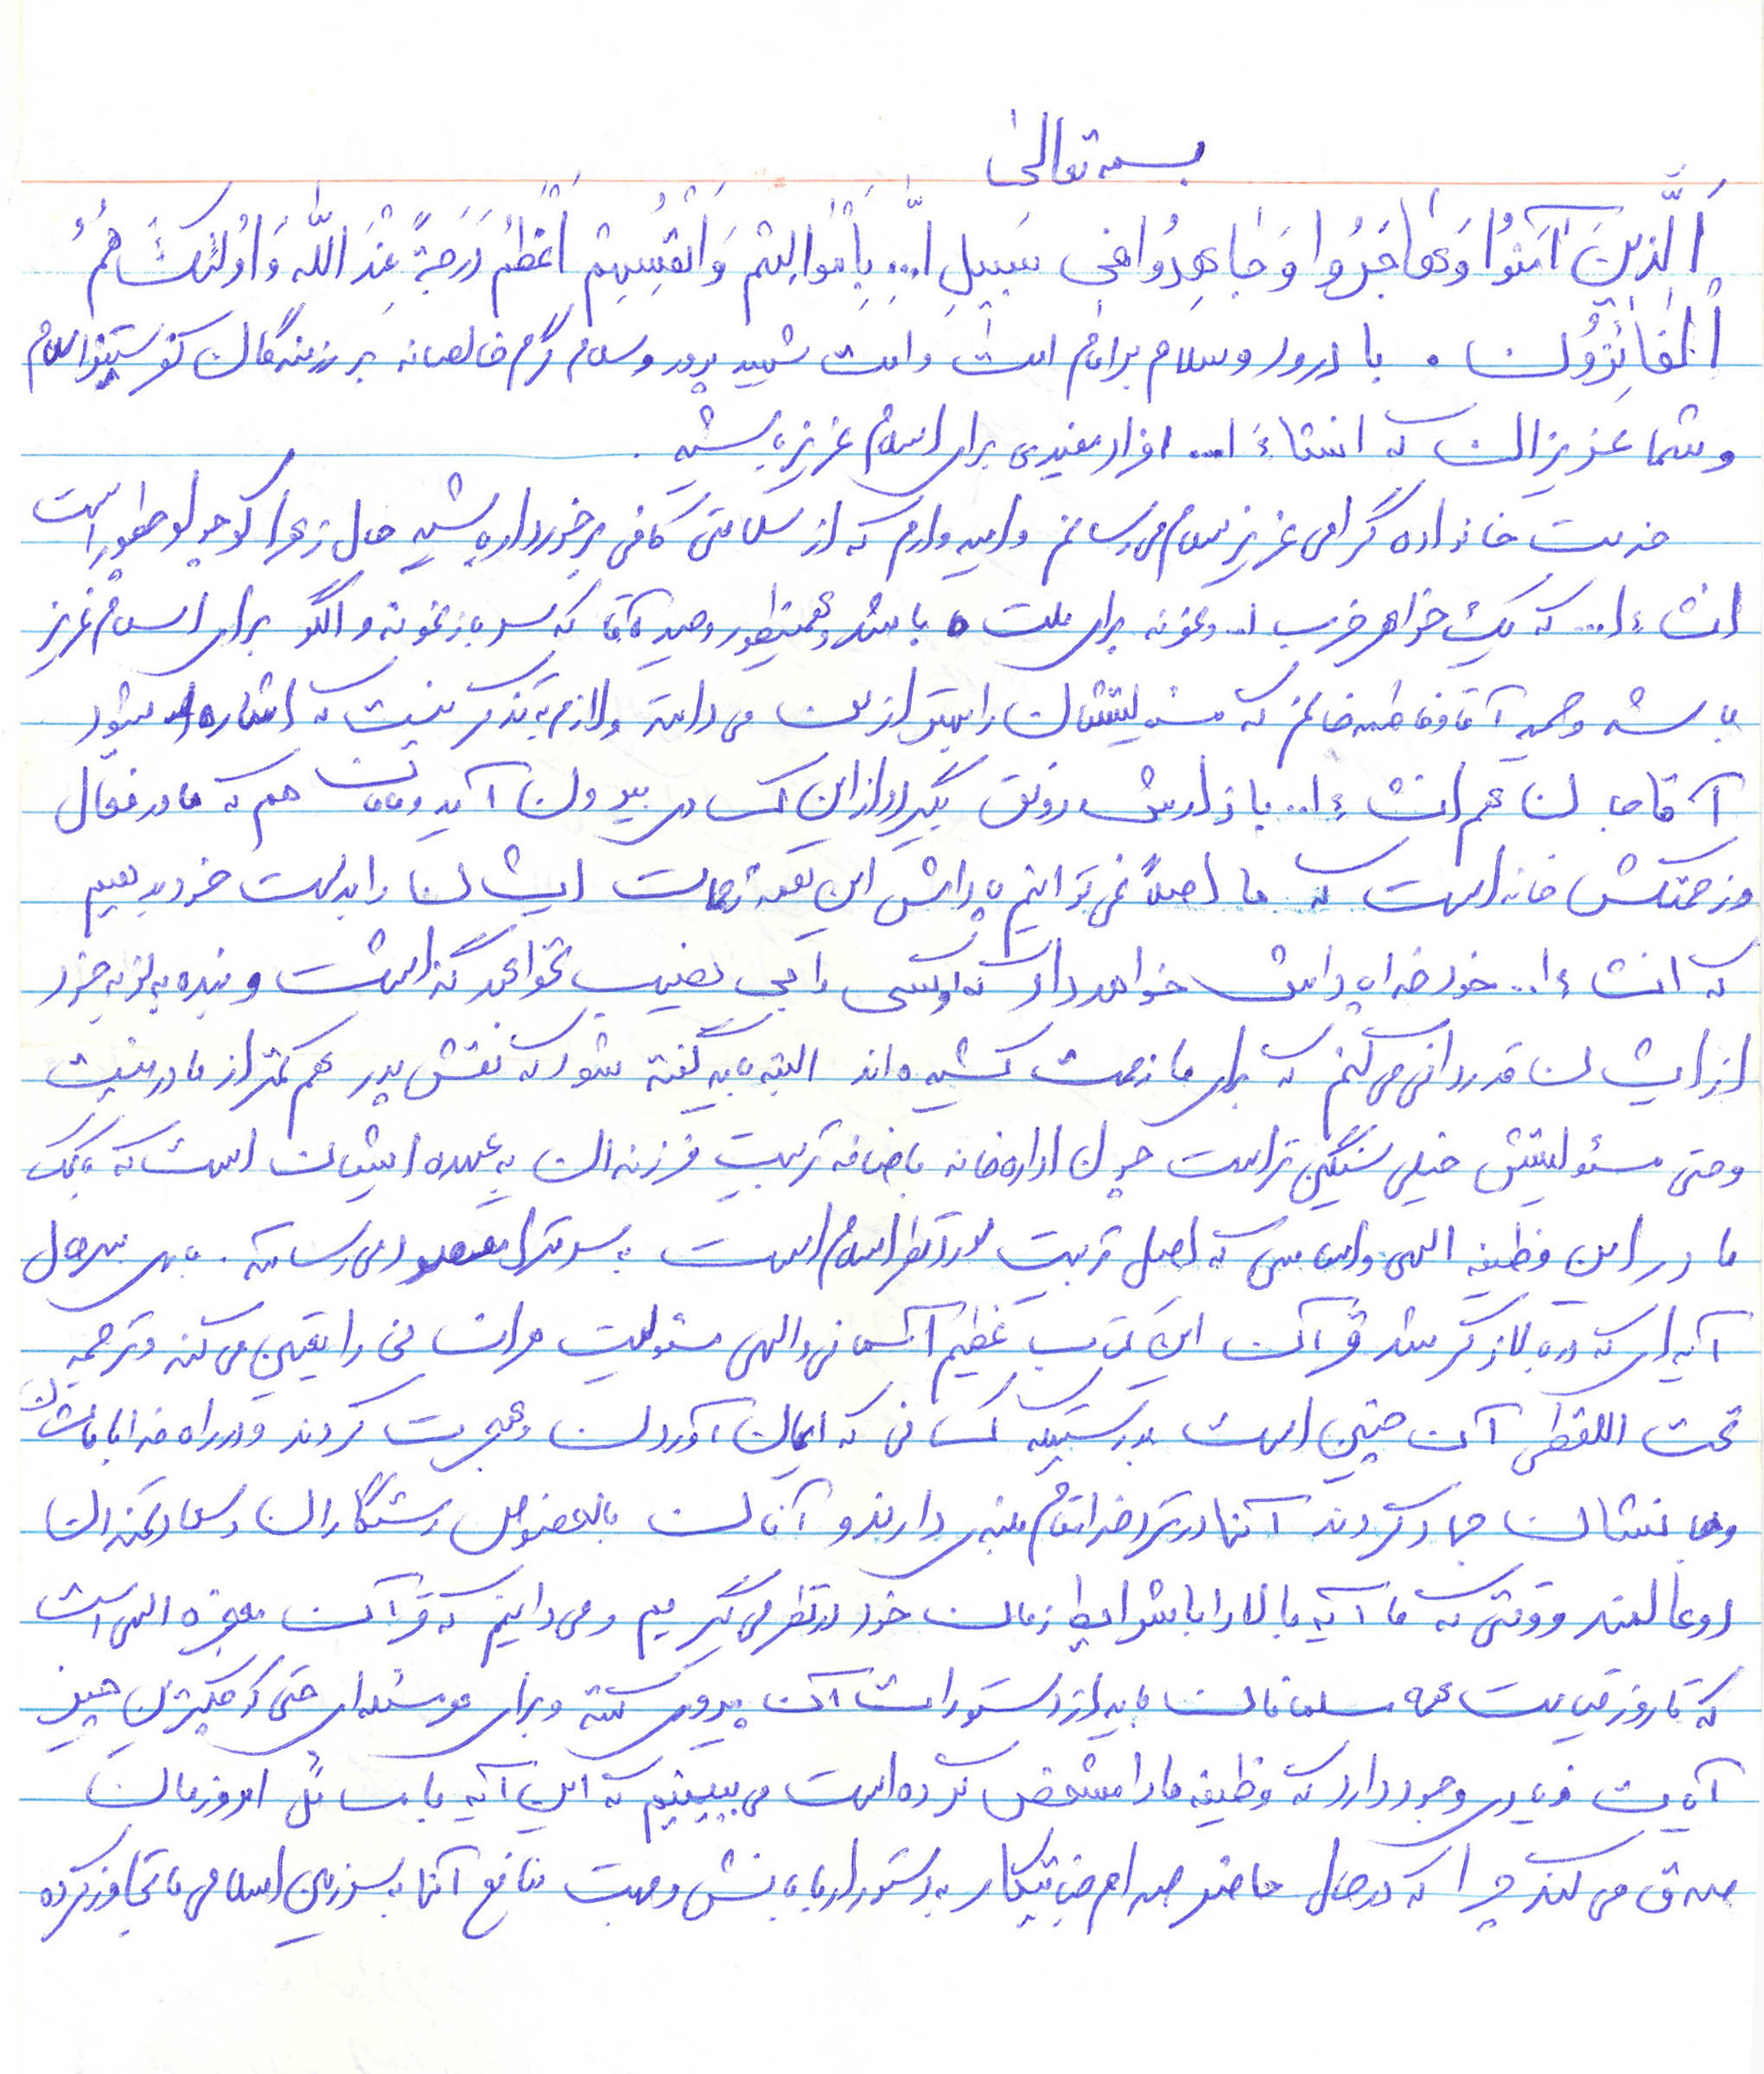 بسمه تعالی
اَلَّذینَ آمَنُوا وَهاجَرُوا وَ جاهِدُوا فی سَبیلِ ا... بِاَمْوالِهِمْ وَ اَنْفُسِهِمْ اَعْظَمُ دَرَجَةً عِنْدَ اللّه وَ اُولئِکَ هُمُ
الْفائِزُونَ . با درود و سلام بر امام امت و امت شهید پرور و سلام گرم خالصانه بر رزمندگان کفر ستیز اسلام
و شما عزیزان که انشاءا... افراد مفیدی برای اسلام عزیز باشید .
خدمت خانواده گرامی عزیز سلام می رسانم و امیدوارم که از سلامتی کافی برخوردار باشید حال زهرا کوچولو چطور است
انشاءا... که یک خواهر حزب ا... و نمونه برای ملت باشد و همینطور وحید آقا که سرباز نمونه و الگو برای اسلام عزیز
باشد و حمید آقا و فاطمه خانم که مسئولیتشان را بهتر از من می دانند و لازم به تذکر نیست که اشاره شود
آقا جان هم انشاءا... بازارش رونق بگیرد و از این کسادی بیرون آید و مامان هم که مادر فعال
و زحمتکش خانه است که ما اصلاً نمی توانیم پاداش این همه زحمات ایشان را بدست خود بدهیم
که انشاءا... خود خدا پاداش خواهد داد که او کسی را بی نصیب نخواهد گذاشت و بنده به نوبه خود
از ایشان قدردانی می کنم که برای ما زحمت کشیده اند البته باید گفته شود که نقش پدر هم کمتر از مادر نیست
و حتی مسئولیتش خیلی سنگین تر است چون اداره خانه باضافه تربیت فرزندان به عهده ایشان است که با کمک
مادر این وظیفه الهی و اساسی که اصل تربیت مورد نظر اسلام است به سر منزل مقصود می رسانند . باری بهرحال
آیه ای که در بالا ذکر شد قرآن این کتاب عظیم آسمانی و الهی مسئولیت هر انسانی را تعیین می کند و ترجمه
تحت اللفظی آن چنین است بدرستیکه کسانی که ایمان آوردن و هجرت کردند و در راه خدا با مالشان
و جانشان جهاد کردند آنها در نزد خدا مقام بلندی دارند و آنان بالخصوص رستگاران و سعادتمندان
دو عالمند و وقتی که ما آیه بالا را با شرایط زمان خود در نظر می گیریم و می دانیم که قرآن معجزه الهی است
که تا روز قیامت همه مسلمانان باید از دستورات آن پیروی کنند و برای هر مسئله ای حتی کوچکترین چیز
آیات زیادی وجود دارد که وظیفه ما را مشخص کرده است می بینیم که این آیه با مسائل امروزمان
صدق می کند چرا که در حال حاضر صدام جنایتکار به دستور اربابانش و جهت منافع آنها به سرزمین اسلامی ما تجاوز کرده